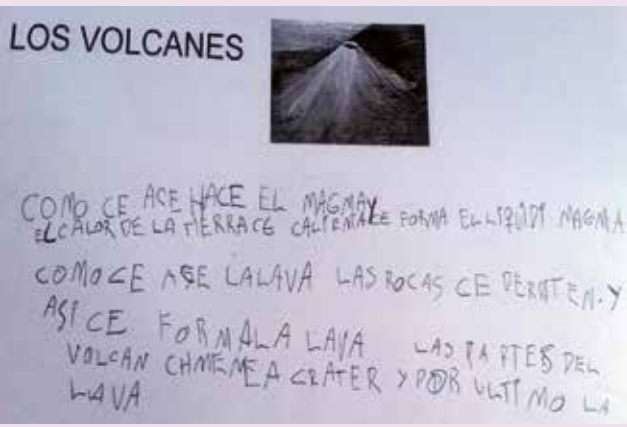 LOS VOLCANES
COMO CE ACE HACE EL MAGMA Y
EL CALOR DE LA TIERRA CE CALIENTA CE FORMA EL LIQUIDI MAGMA
COMO CE ASE LALAVA LAS ROCAS CE DERITEN. Y
ASI CE FORMALA LAVA LAS PARTES DEL
VOLCAN CHMENEA CRATER Y POR ULTIMO LA
LAVA